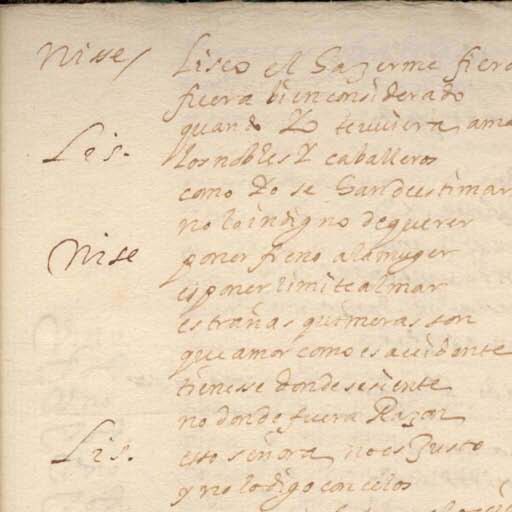 Nise / Liseo el hazerme fiero
fuera bien considerado
quando Yo te uuiera ama
Lis. los nobles Y caballeros
como Yo se han de estimar
no lo indigno de querer
Nise poner freno a la muger
es poner limite al mar
estrañas quimeras son
que amor como es accidente
tienesse donde se siente
no donde fuera Razon
Lis. esto señora no es Justo
y no lo digo con celos